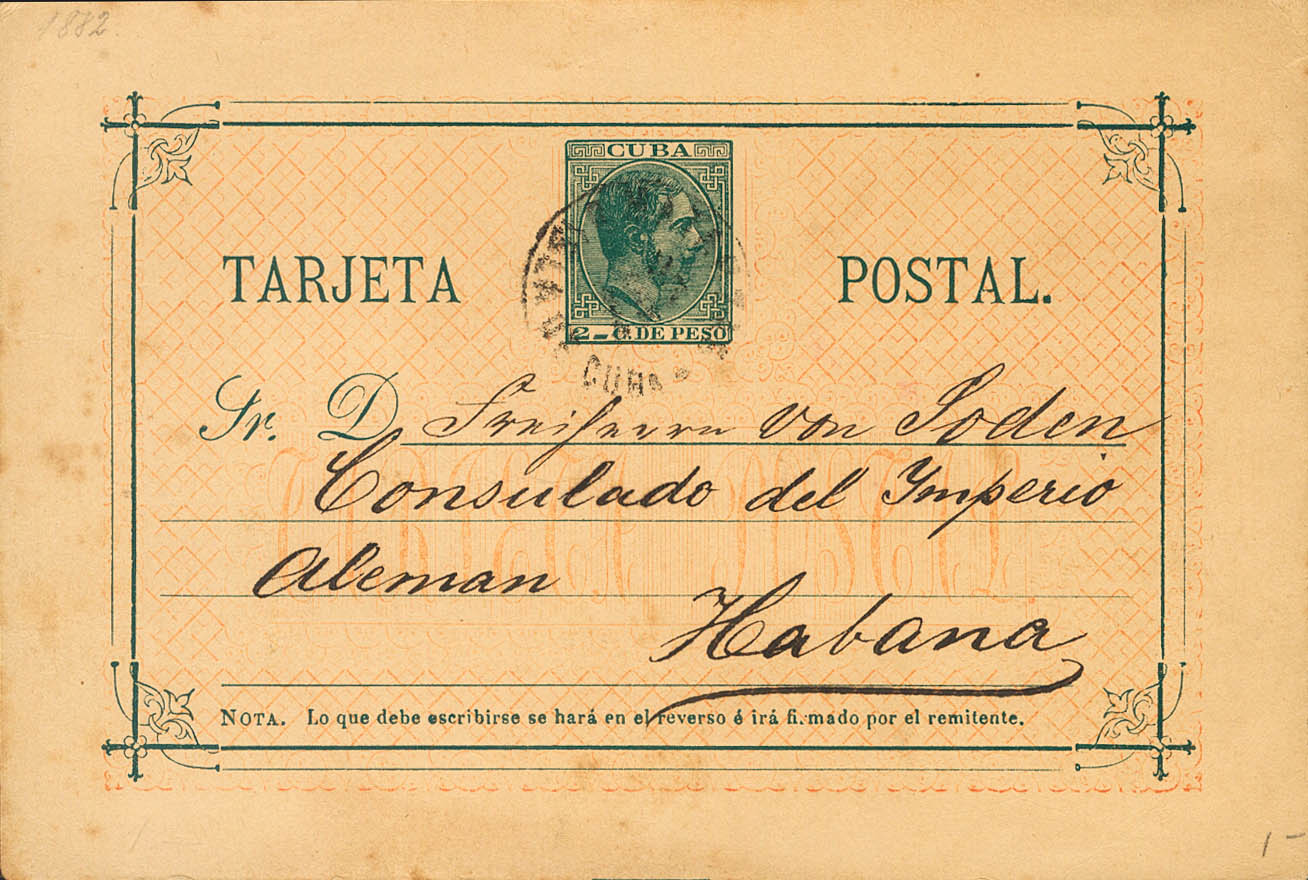 1882.
CUBA
2-C. DE PESO
TARJETA POSTAL.
CUBA
Sr. D Freiherrn von Soden
Consulado del Imperio
Aleman
Habana
NOTA. Lo que debe escribirse se hará en el reverso é irá fi.mado por el remitente.
1-